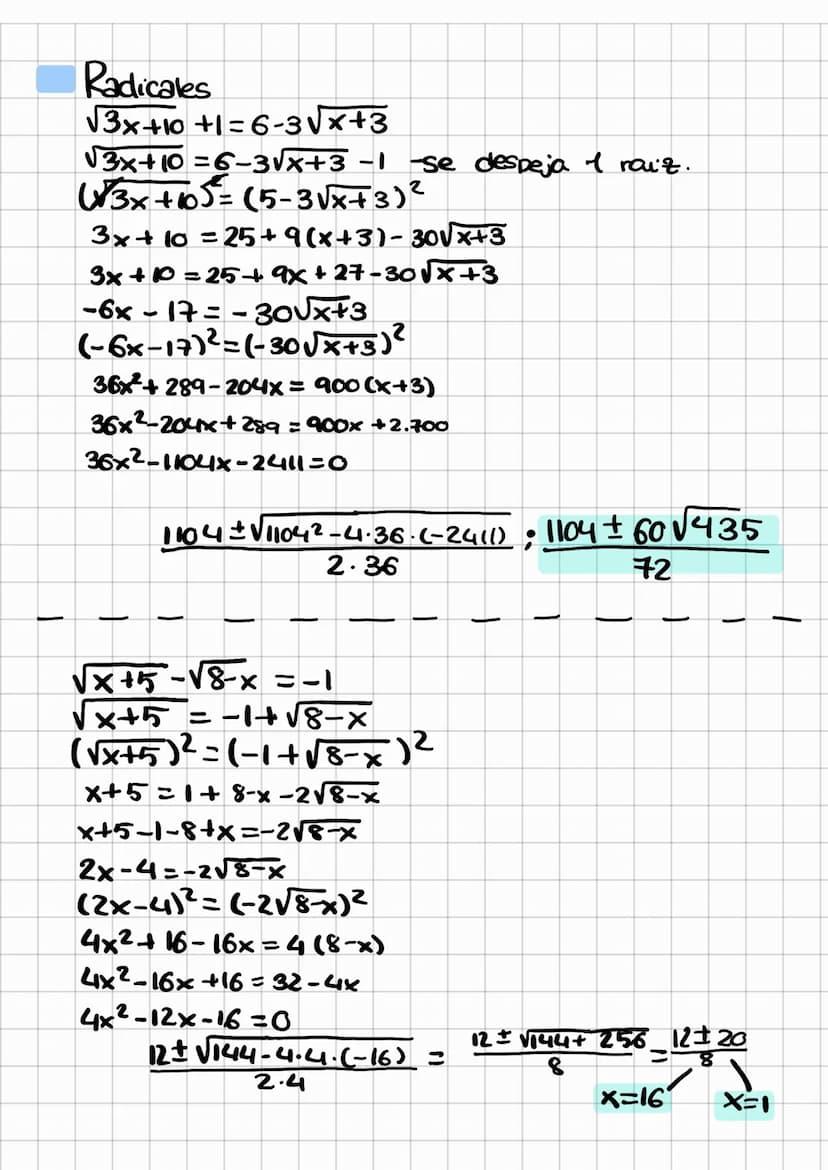 Radicales
√3x+10 +1 = 6-3√x+3
√3x+10 = 6-3√x+3 -1 -se despeja 1 raiz.
(√3x+10)² = (5-3√x+3)²
3x+10 = 25+9(x+3)-30√x+3
3x+10 = 25+9x+27-30√x+3
-6x-17 = -30√x+3
(-6x-17)² = (-30√x+3)²
36x²+289-204x = 900(x+3)
36x²-204x+289 = 900x+2.700
36x²-1104x-2411=0
1104±√1104²-4·36·(-2411) ; 1104±60√435
2·36 72
√x+5 -√8-x = -1
√x+5 = -1+√8-x
(√x+5)² = (-1+√8-x)²
x+5 = 1+8-x-2√8-x
x+5-1-8+x = -2√8-x
2x-4 = -2√8-x
(2x-4)² = (-2√8-x)²
4x²+16-16x = 4(8-x)
4x²-16x+16 = 32-4x
4x²-12x-16=0
12±√144-4·4·(-16) = 12±√144+256 = 12±20
2·4 8 8
x=16 x=1